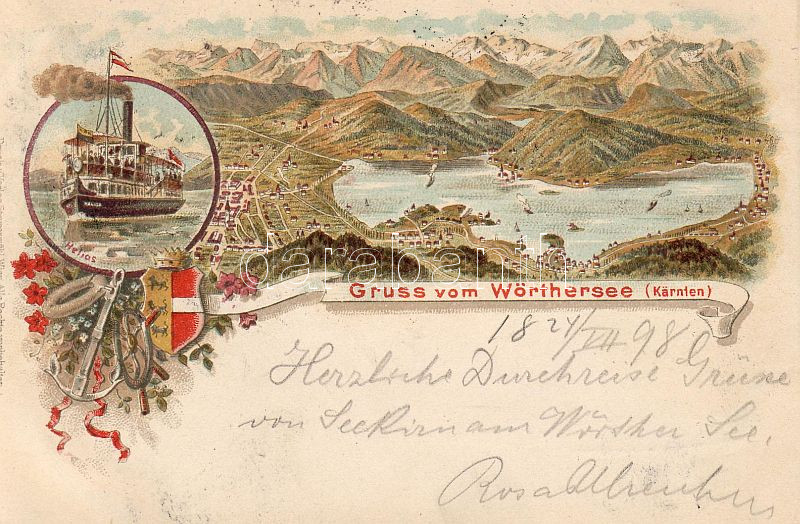 Helios
Gruss vom Wörthersee (Kärnten)
18 24/VII 98
Herzliche Durchreise Grüsse
von Seekirn am Wörther See.
Rosa
darabanth